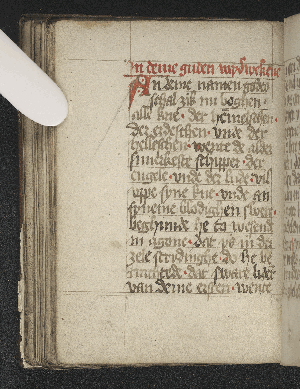 In deme guden mydweken
An deme namen godes
schal zik nu böghen
alle kne · der hemeschen ·
der erdeschen · vnde der
helleschen · wente de alder
sinerkeste schipper der
engele · vnde der lude vil
vppe syne kne · vnde an
syneme blodighen swete
beghunde he to wesend
in agone · dar yo in der
zele stridinghe do he be
ruchtede · dat sware lident
van deme ersten · wente